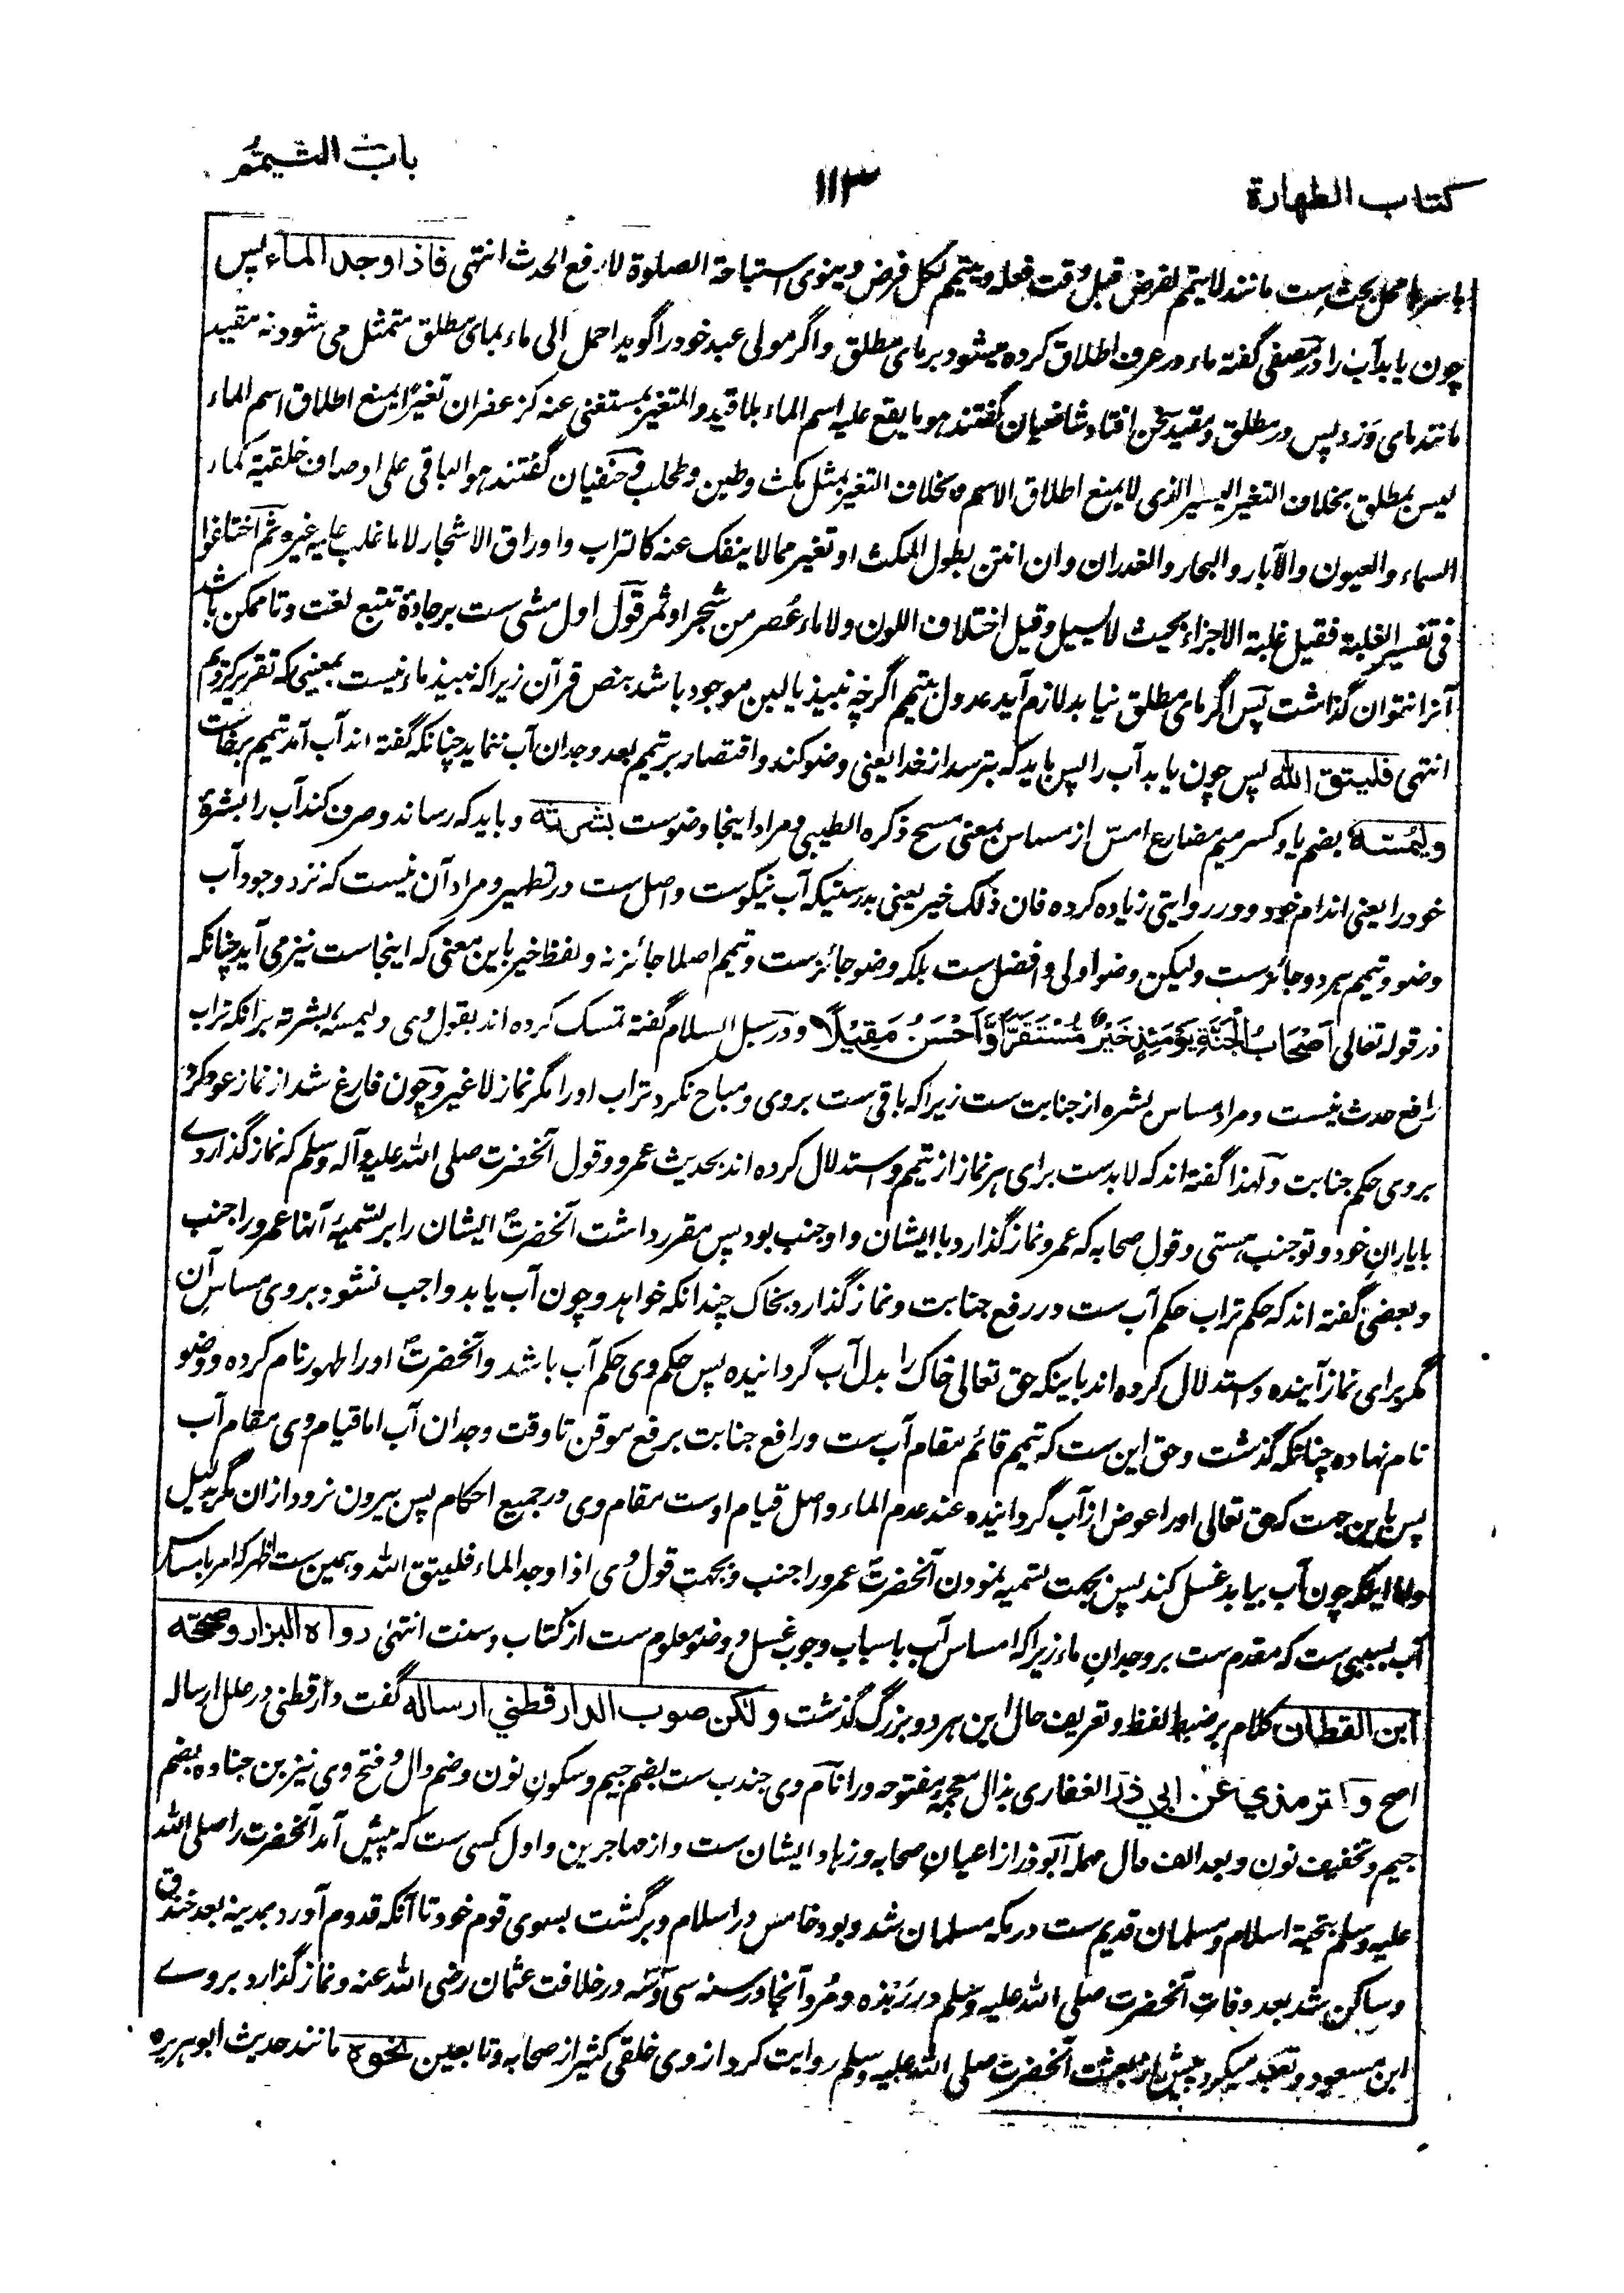 كتاب الطهارة
١١٣
باب التيمم
باسرها محل بحث ست مانند لا يتيمم لفرض قبل وقت فعله ويتيمم لكل فرض وينوى استباحة الصلوة لا رفع الحدث انتهى فاذا وجد الماء پس
چون يابد آب را در مصفى گفته ماء در عرف اطلاق كرده ميشود بر ماى مطلق واگر مولى عبد خود را گويد احمل الى ماء بماى مطلق متمثل مى شود نه مقيد
مانند ماى وَرد پس در مطلق ومقيد سخن افتاد شافعيان گفتند هو ما يقع عليه اسم الماء بلا قيد والمتغير بمستغنى عنه كزعفران تغيرًا يمنع اطلاق اسم الماء
ليس بمطلق بخلاف التغير اليسير الذى لا يمنع اطلاق الاسم وبخلاف التغير بمثل مكث وطين وطحلب وحنفيان گفتند هو الباقى على اوصاف خلقية كماء
السماء والعيون والآبار والبحار والغدران وان انتن بطول المكث او تغير مما لا ينفك عنه كالتراب واوراق الاشجار لا ما غلب عليه غيره ثم اختلفوا
فى تفسير الغلبة فقيل غلبة الاجزاء بحيث لا يسيل وقيل اختلاف اللون ولا ماء عُصر من شجر او ثمر قول اول مشى ست بر جادۀ تتبع لغت وتا ممكن باشد
آنرا نتوان گذاشت پس اگر ماى مطلق نيابد لازم آيد عدول بتيمم اگرچه نبيذ يا لبن موجود باشد بنص قرآن زيراكه نبيذ ماء نيست بمعنى كه تقرير كرديم
انتهى فليتق الله پس چون يابد آب را پس بايد كه بترسد از خدا يعنى وضو كند واقتصار بر تيمم بعد وجدان آب ننمايد چنانكه گفته اند آب آمد تيمم برخاست
وليمسه بضم يا وكسر ميم مضارع امسّ از مساس بمعنى مسح ذكره الطيبى ومراد اينجا وضوست بشرته وبايد كه رساند وصرف كند آب را بشرۀ
خود را يعنى اندام خود ودر روايتى زياده كرده فان ذلك خير يعنى بدرستيكه آب نيكوست واصل ست در تطهير ومراد آن نيست كه نزد وجود آب
وضو وتيمم هر دو جائزست وليكن وضو اولى وافضل ست بلكه وضو جائزست وتيمم اصلا جائز نه ولفظ خير باين معنى كه اينجاست نيز مى آيد چنانكه
در قوله تعالى اَصْحَابُ الْجَنَّةِ يَوْمَئِذٍ خَيْرٌ مُّسْتَقَرًّا وَّاَحْسَنُ مَقِيْلًا ودر سبل السلام گفته تمسك كرده اند بقول وى وليمسه بشرته برانكه تراب
رافع حدث نيست ومراد مساس بشره از جنابت ست زيراكه باقى ست بروى ومباح نكرد تراب او را مگر نماز لا غير وچون فارغ شد از نماز عود كرد
بروى حكم جنابت ولهذا گفته اند كه لابدست براى هر نماز از تيمم واستدلال كرده اند بحديث عمرو وقول آنحضرت صلى الله عليه وآله وسلم كه نماز گذاردے
با ياران خود وتو جنب هستى وقول صحابه كه عمرو نماز گذارد با ايشان واو جنب بود پس مقرر داشت آنحضرت ؐ ايشان را بر تسميۀ آنها عمرو را جنب
وبعضى گفته اند كه حكم تراب حكم آب ست در رفع جنابت ونماز گذارد بخاك چندانكه خواهد وچون آب يابد واجب نشود بروى مساس آن
مگر براى نماز آينده واستدلال كرده اند باينكه حق تعالى خاك را بدل آب گردانيده پس حكم وى حكم آب باشد وآنحضرت ؐ او را طهور نام كرده ووضو
نام نهاده چنانكه گذشت وحق اين ست كه تيمم قائم مقام آب ست ورافع جنابت برفع موقت تا وقت وجدان آب اما قيام وى مقام آب
پس باين جهت كه حق تعالى او را عوض از آب گردانيده عند عدم الماء واصل قيام اوست مقام وى در جميع احكام پس بيرون نرود ازان مگر بدليل
واما اينكه چون آب بيابد غسل كند پس بجهت تسميه نمودن آنحضرت ؐ عمرو را جنب وبجهت قول وى اذا وجد الماء فليتق الله وهمين ست اظهر كه امر بامساس
آب بسببى ست كه مقدم ست بر وجدان ماء زيراكه امساس آب باسباب وجوب غسل ووضو معلوم ست از كتاب وسنت انتهى رواه البزار وصححه
ابن القطان كلام بر ضبط لفظ وتعريف حال اين هر دو بزرگ گذشت ولكن صوب الدار قطني ارساله گفت دارقطنى در علل ارساله
اصح والترمذي عن ابي ذر الغفارى بذال معجمه مفتوحه ورا نام وى جندب ست بضم جيم وسكون نون وضم دال وفتح وى نيز بن جناده بضم
جيم وتخفيف نون وبعد الف دال مهمله ابوذر از اعيان صحابه وزهاد ايشان ست واز مهاجرين واول كسى ست كه پيش آمد آنحضرت را صلى الله
عليه وسلم بتحية اسلام ومسلمان قديم ست در مكه مسلمان شد وبود خامس در اسلام وبرگشت بسوى قوم خود تا آنكه قدوم آورد بمدينه بعد خندق
وساكن شد بعد وفات آنحضرت صلى الله عليه وسلم در رَبَذه ومُرد آنجا در سنه سى ودو در خلافت عثمان رضى الله عنه ونماز گذارد بروے
ابن مسعود وتعبد ميكرد پيش از مبعث آنحضرت صلى الله عليه وسلم روايت كرد از وى خلقى كثير از صحابه وتابعين نحوه مانند حديث ابو هريره